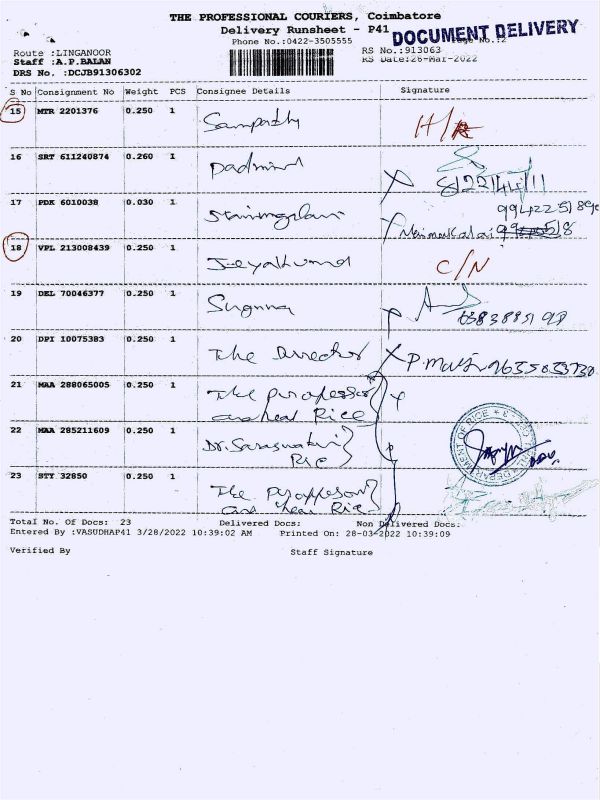 THE PROFESSIONAL COURIERS, Coimbatore
Delivery Runsheet - P41
DOCUMENT DELIVERY
Phone No.:0422-3505555
No.:2
Route :LINGANOOR
RS No.:913063
Staff :A.P.BALAN
RS Date:26-Mar-2022
DRS No. :DCJB91306302
S No Consignment No Weight PCS Consignee Details Signature
15 MTR 2201376 0.250 1 Sampathy
16 SRT 611240874 0.260 1 Padmini
17 PDK 6010038 0.030 1
18 VPL 213008439 0.250 1 C/N
19 DEL 70046377 0.250 1 Suguna
20 DPI 10075383 0.250 1 The Director
21 MAA 288065005 0.250 1 The Professor
and Head Rice
22 MAA 285211609 0.250 1 Dr. Saraswathi
Rice
23 STY 32850 0.250 1 The Professor
and Head Rice
DEPARTMENT OF RICE
Total No. Of Docs: 23 Delivered Docs: Non Delivered Docs:
Entered By :VASUDHAP41 3/28/2022 10:39:02 AM Printed On: 28-03-2022 10:39:09
Verified By Staff Signature